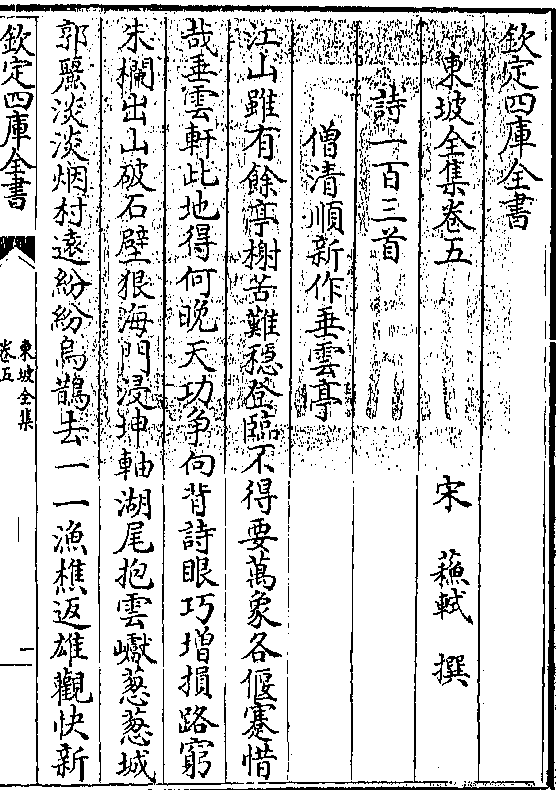 欽定四庫全書
東坡全集卷五
宋 蘇軾 撰
詩一百三首
僧清順新作垂雲亭
江山雖有餘亭榭苦難穩登臨不得要萬象各偃蹇惜
哉垂雲軒此地得何晚天功争向背詩眼巧增損路窮
朱欄出山破石壁狠海門浸坤軸湖尾抱雲巘葱葱城
郭麗淡淡烟村逺紛紛烏鵲去一一漁樵返雄觀快新
欽定四庫全書
東坡全集
卷五
一